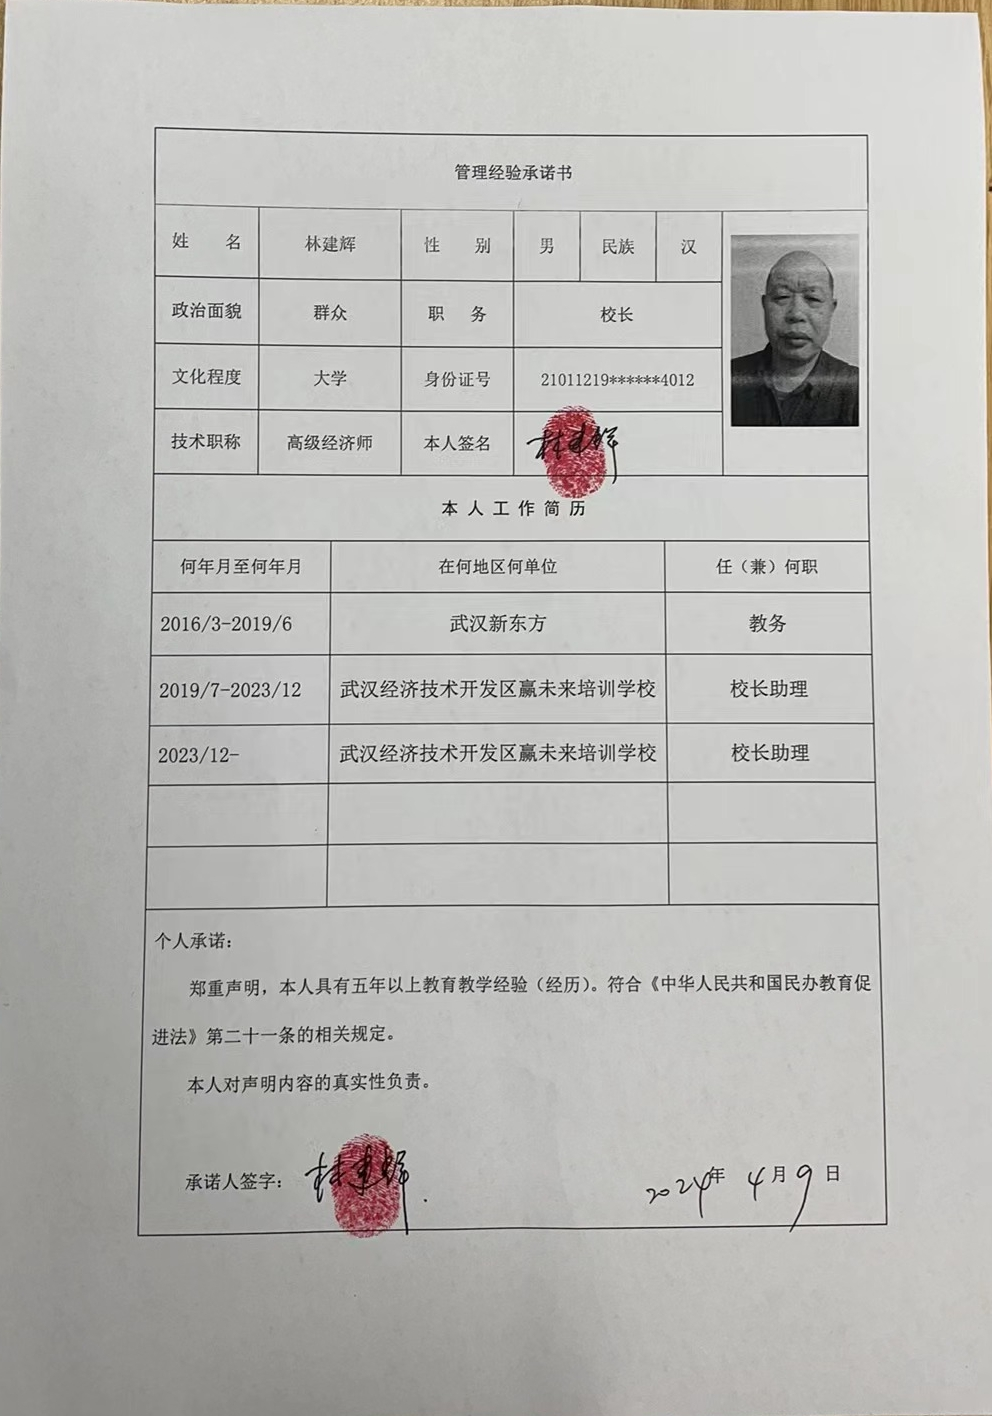 管理经验承诺书
姓 名 林建辉 性 别 男 民族 汉
政治面貌 群众 职 务 校长
文化程度 大学 身份证号 21011219******4012
技术职称 高级经济师 本人签名 林建辉
本人工作简历
何年月至何年月 在何地区何单位 任（兼）何职
2016/3-2019/6 武汉新东方 教务
2019/7-2023/12 武汉经济技术开发区赢未来培训学校 校长助理
2023/12- 武汉经济技术开发区赢未来培训学校 校长助理
个人承诺：
郑重声明，本人具有五年以上教育教学经验（经历）。符合《中华人民共和国民办教育促
进法》第二十一条的相关规定。
本人对声明内容的真实性负责。
承诺人签字： 林建辉 2024年 4月9日